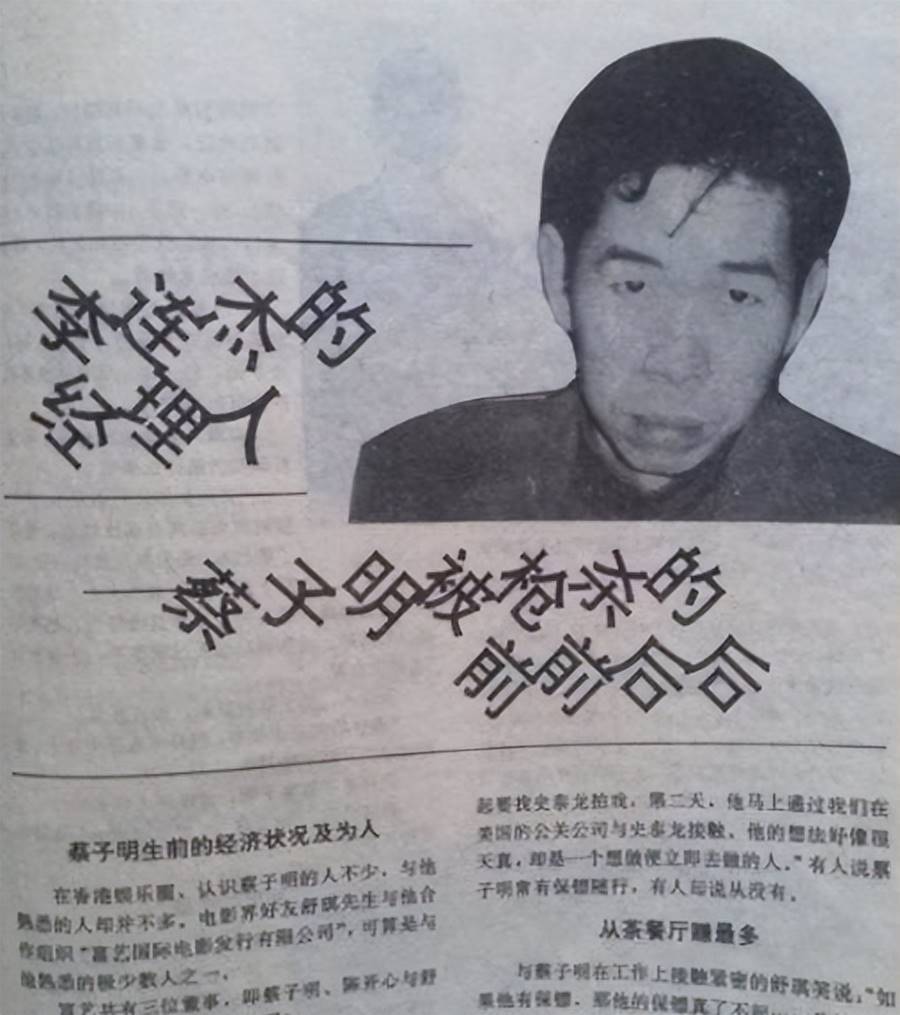 李涟杰的
经理人
——蔡子明被枪杀的
前前后后
蔡子明生前的经济状况及为人
在香港娱乐圈、认识蔡子明的人不少，与他
熟悉的人却并不多。电影界好友舒琪先生与他合
作组织“富艺国际电影发行有限公司”，可算是与
他熟悉的极少数人之一。
富艺共有三位董事，即蔡子明、陈开心与舒
起要找史泰龙拍戏，第二天，他马上通过我们在
美国的公关公司与史泰龙接触、他的想法好像很
天真，却是一个想做便立即去做的人。”有人说蔡
子明常有保镖随行，有人却说从没有。
从茶餐厅赚最多
与蔡子明在工作上接触紧密的舒琪笑说：“如
果他有保镖，那他的保镖真了不起